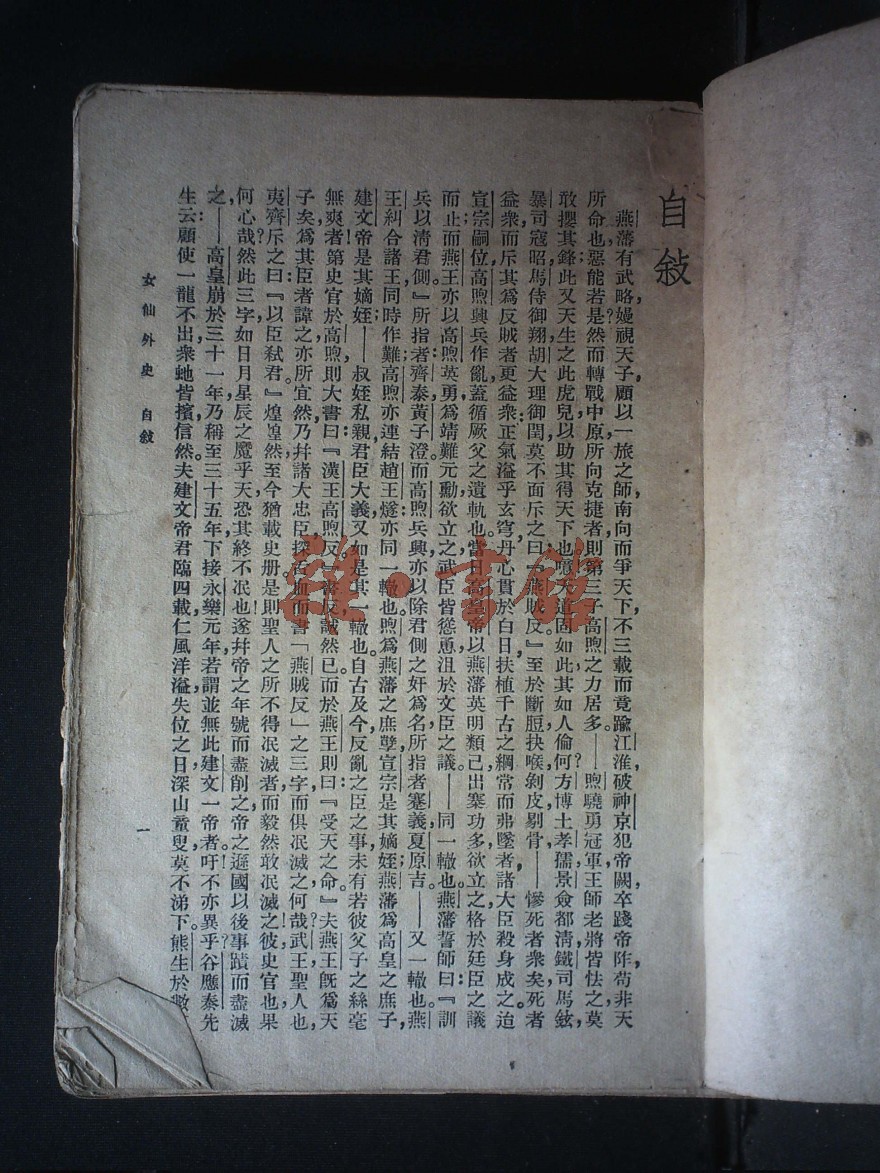 自敍
燕藩有武略，嫚視天子，顧以一旅之師，南向而爭天下，不三載而竟踰江淮，破神京，犯帝闕，卒踐帝阼，苟非天
所命也，惡能若是？然而轉戰中原，所向克捷者，則第三子高煦之力居多。——煦驍勇冠軍，王師老將皆怯之，莫
敢攖其鋒，此又天生之此虎兒，以助其得天下也。噫！天道固如此，其如人倫何？方博士孝孺，景僉都清，鐵司馬鉉，
暴司寇昭，馬侍御翔，胡大理御閏，莫不面斥之曰：『燕賊反。』至於斷脰抉喉，剝皮剔骨——慘死者衆矣。死者
益衆，而斥其爲反賊者更益衆；正氣溢乎玄穹，丹心貫於白日，扶植千古之綱常而弗墜者，諸大臣殺身成之。迨
宣宗嗣位，高煦興兵作亂，蓋循厥父之遺軌也。當日高皇帝以燕藩英明類己，出塞功多，欲立之，格於廷臣之議
而止；而燕王亦以高煦英勇，爲靖難元勳，欲立之，武臣皆慫恿，沮於文臣之議。——同一轍也。燕藩誓師曰：『訓
兵以清君側。』所指者，齊泰黃子澄。而高煦兵興，亦以除君側之奸爲名，所指者蹇義夏原吉。——又一轍也。燕
王糾合諸王，同時作難；高煦亦連結趙王燧，亦同一轍也。煦爲燕藩之庶孽，宣宗是其嫡姪；燕藩爲高皇之庶子，
建文帝是其嫡姪——叔姪私親，君臣大義，又如是其一轍也。自古及今，反亂之臣之事，未有若彼父子之絲毫
無爽者！第史官於高煦，則大書曰：『漢王高煦反。』書反誠然已；而於燕王則曰：『受天之命。』夫燕王旣爲天
子矣，爲其臣者諱之，亦所宜然，乃幷諸大忠臣探舌血而書「燕賊反」之三字而俱泯滅之，何哉？武王聖人也，
夷齊斥之曰：『以臣弒君。』煌煌然至今猶載史册，是則聖人之所不得泯滅者，而毅然敢泯滅之！彼史官也，果
何心哉？然此三字，如日月星辰之麗乎天，恐其終不泯也，遂幷帝之年號而盡削之，帝之遜國以後事蹟而盡滅
之——高皇崩於三十一年，乃稱至三十五年，下接永樂元年，若謂並無此建文一帝者。吁！不亦異乎？谷應泰先
生云：顧使一龍不出，衆虵皆擯，信然。夫建文帝君臨四載，仁風洋溢，失位之日，深山童叟，莫不涕下。熊生於數
女仙外史 自敍
一
雜·書館